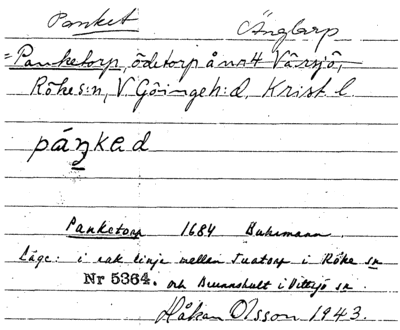 Panket Änglarp
= Panketorp, ödetorp å nr 4 Vårsjö,
Röke s:n, V. Göinge h:d, Krist. l.
páŋked
Panketorp 1684 Buhrmann
Läge: i rak linje mellan Tuatorp i Röke sn
Nr 5364. och Brunnshult i Vittsjö sn
Håkan Olsson 1943.